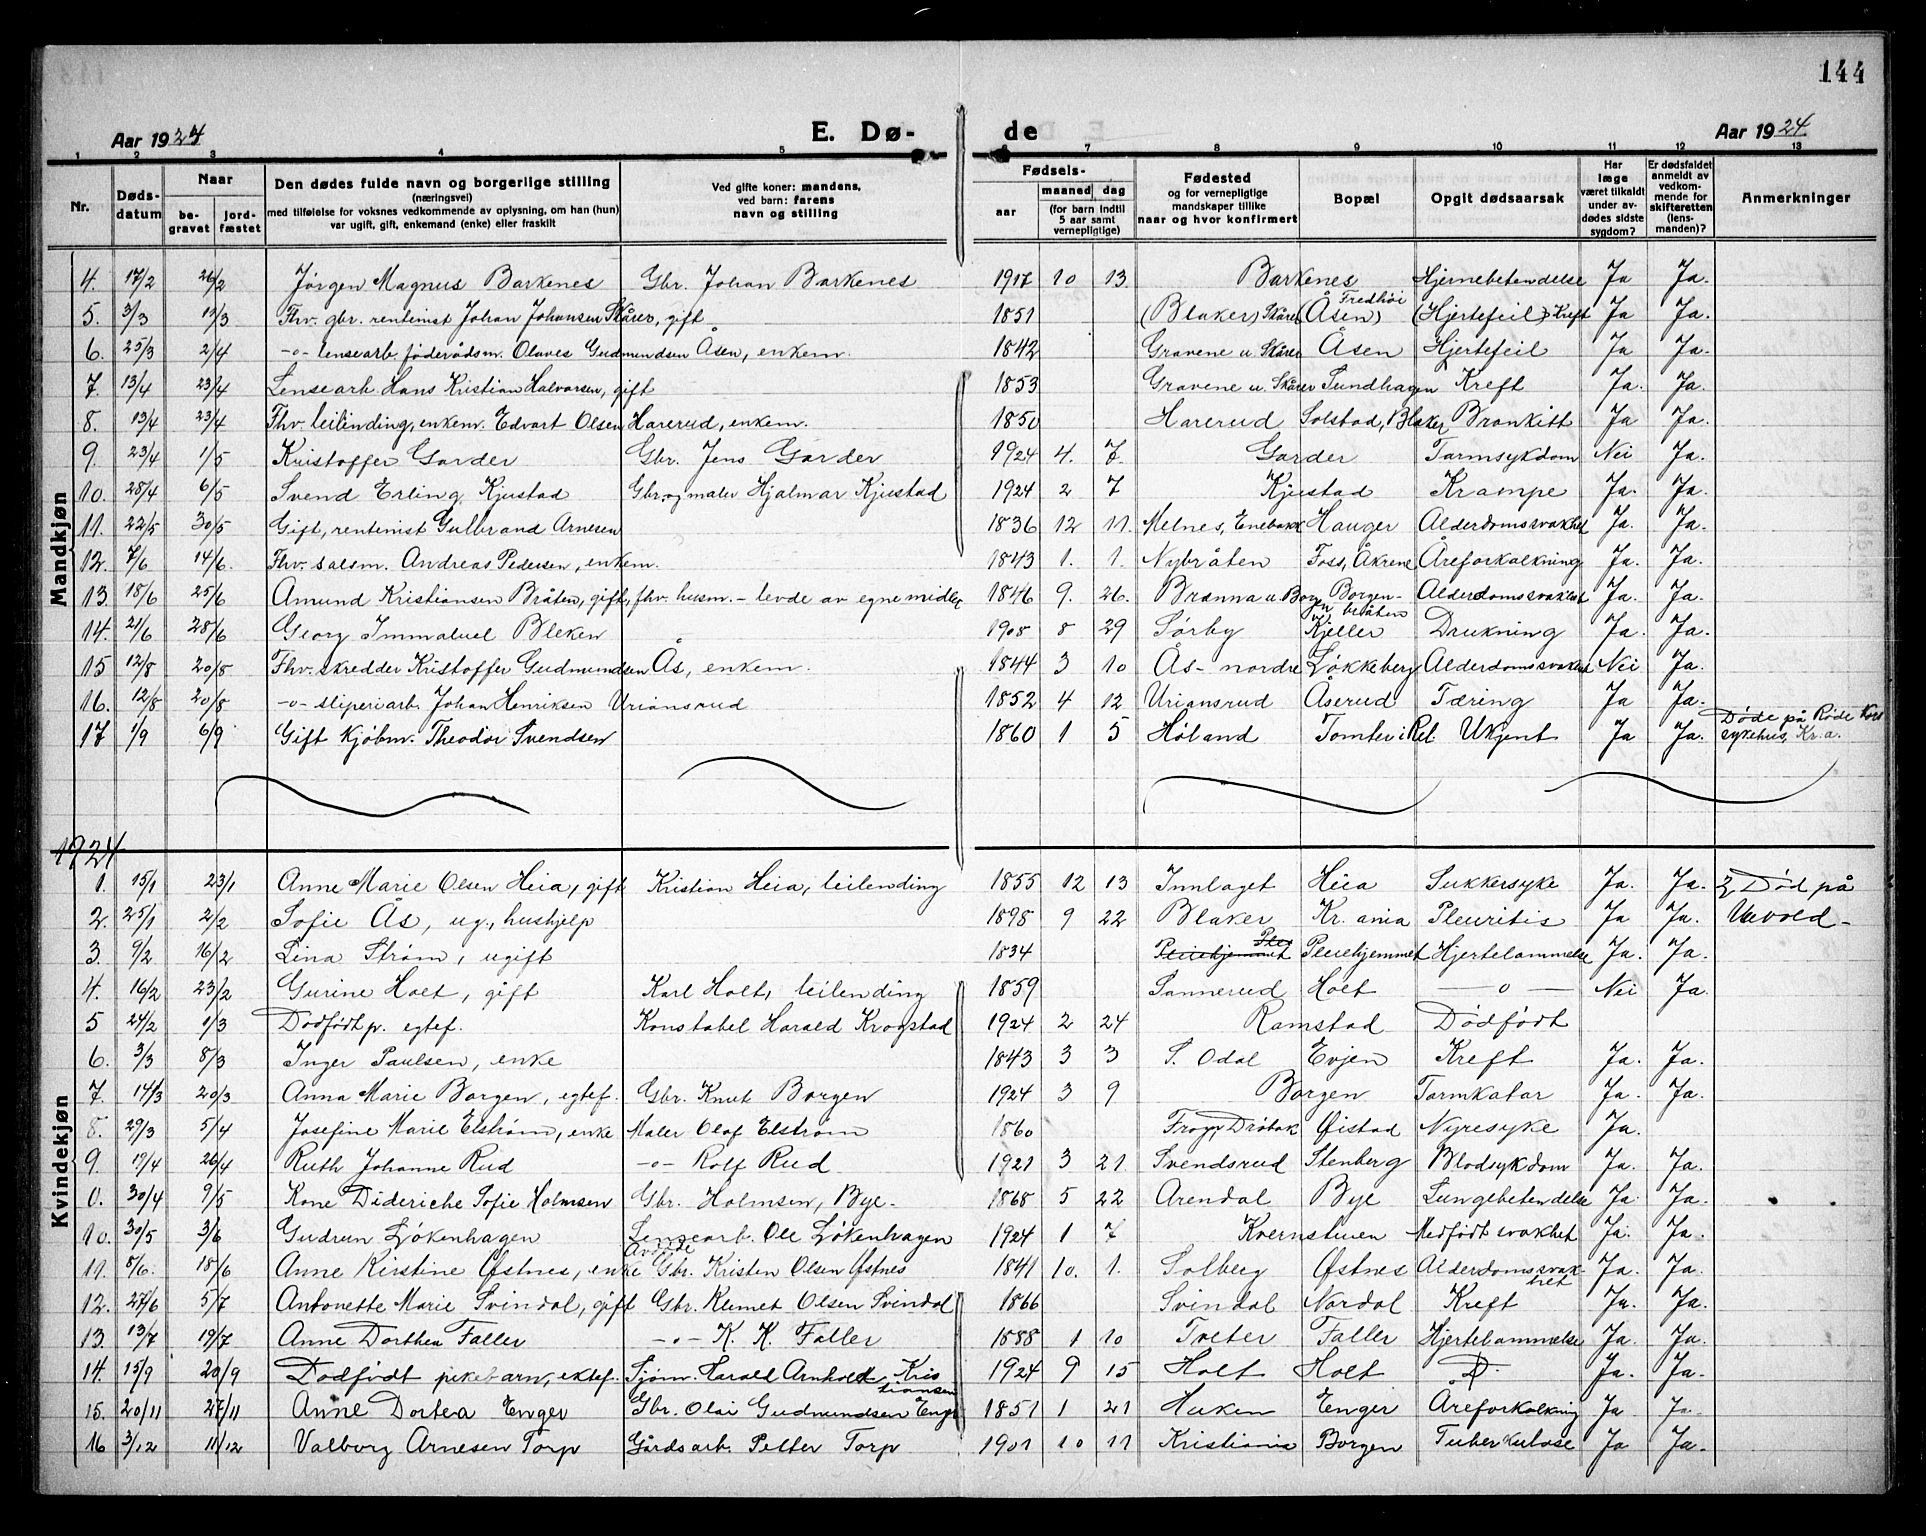 144
Aar 1924 E. Dø- de Aar 1924
1 2 3 4 5 6 7 8 9 10 11 12 13
Nr. Døds-datum Naar be-gravet jord-fæstet Den dødes fulde navn og borgerlige stilling (næringsvei) med tilføielse for voksnes vedkommende av oplysning, om han (hun) var ugift, gift, enkemand (enke) eller fraskilt Ved gifte koner: mandens, ved barn: farens navn og stilling Fødsels- aar maaned dag (for barn indtil 5 aar samt vernepligtige) Fødested og for vernepligtige mandskaper tillike naar og hvor konfirmert Bopæl Opgit dødsaarsak Har læge været tilkaldt under av-dødes sidste sygdom? Er dødsfaldet anmeldt av vedkom-mende for skifteretten (lens-manden)? Anmerkninger
Mandkjøn
4. 17/2 26/2 Jørgen Magnus Barkenes Gbr. Johan Barkenes 1917 10 13 Barkenes Hjernebetendelse Ja Ja.
5. 3/3 13/3 Fhv. gbr. rentenist Johan Johansen Skårer, gift 1851 (Blaker) Skårer (Åsen) Fredhöi (Hjertefeil) Kreft Ja Ja.
6. 25/3 2/4 -o- lensearb. föderådsm. Olaves Gudmundsen Åsen, enkem. 1842 Gravene u. Skårer Åsen Hjertefeil Ja Ja.
7. 13/4 23/4 Lensearb. Hans Kristian Halvorsen, gift 1853 Gravene u. Skårer Sundhagen Kreft Ja. Ja.
8. 13/4 23/4 Fhv. leilending, enkem. Edvart Olsen Harerud, enkem. 1850 Harerud Solstad, Blaker Bronkitt Ja Ja.
9. 23/4 1/5 Kristoffer Garder Gbr. Jens Garder 1924 4. 7. Garder Tarmsykdom Nei Ja.
10. 28/4 6/5 Svend Erling Kjustad Gbr. og maler Hjalmar Kjustad 1924 2 7 Kjustad Krampe Ja. Ja.
11. 22/5 30/5 Gift, rentenist Gulbrand Arnesen 1836 12 11. Melnes, Enebakk Hauger Alderdomssvakhet Ja. Ja.
12. 7/6 14/6. Fhv. salsm. Andreas Pedersen, enkem. 1843 1. 1. Nybråten Foss, Åkrene Åreforkalkning Ja. Ja.
13. 18/6 25/6 Amund Kristiansen Bråten, gift, fhv. husm. - levde av egne midler 1846 9. 26. Brænna u. Borgen Borgen-bråten Alderdomssvakhet Ja. Ja.
14. 21/6 28/6 Georg Immanuel Bleken 1908 8 29 Sørby Kjeller Drukning Ja. Ja.
15 12/8 20/8 Fhv. skredder Kristoffer Gudmundsen Ås, enkem. 1844 3 10 Ås - nordre Løkkeberg Alderdomssvakhet Nei Ja.
16. 12/8 20/8 -o- sliperiarb. Johan Henriksen Uriansrud 1852 4 12 Uriansrud Åserud Tæring Ja Ja.
17 1/9 6/9 Gift Kjøbm. Theodor Svendsen 1860 1 5 Høland Tomter i Rel. Ukjent Ja Ja. Døde på Røde Kors sykehus, Kr.a.
1924
Kvindekjøn
1. 15/1 23/1 Anne Marie Olsen Heia, gift Kristian Heia, leilending 1855 12 13 Innlaget Heia Sukkersyke Ja. Ja. Död på
2. 25/1 2/2 Sofie Ås, ug., hushjelp 1898 9 22 Blaker Kr.ania Pleuritis Ja Ja. Ulevold -
3. 9/2 16/2 Lina Strøm, ugift 1834 Pleiehjemmet Pleiehjemmet Hjertelammelse Ja. Ja.
4. 16/2 23/2 Gurine Holt, gift Karl Holt, leilending 1859 Sannerud Holt -o- Nei Ja.
5 24/2 1/3 Dødfødt p. egtef. Konstabel Harald Krogstad 1924 2 24 Ramstad Dödfödt
6. 3/3 8/3 Inger Paulsen, enke 1843 3 3 S. Odal Evjen Kreft Ja. Ja.
7. 14/3 20/3 Anna Marie Borgen, egtef. Gbr. Knut Borgen 1924 3 9 Borgen Tarmkatar Ja. Ja.
8. 29/3 5/4 Josefine Marie Elstrøm, enke Maler Olof Elstrøm 1860 Frogn, Dröbak Øistad Nyresyke Ja.
9. 19/4 26/4 Ruth Johanne Rud -o- Rolf Rud 1921 3 21. Svendsrud Stenberg Blodsykdom Ja. Ja.
0. 30/4 9/5 Kone Dideriche Sofie Holmsen Gbr. Holmsen, Bye. 1868 5 22 Arendal Bye Lungebetendelse Ja. Ja.
10. 30/5 3/6 Gudrun Løkenhagen Lensearb. Ole Løkenhagen 1924 1 7 Kvernstuen Medfödt svakhet Ja. Ja.
11. 8/6. 18/6 Anne Kirstine Østnes, enke Avdøde Gbr. Kristen Olsen Østnes 1841 10. 1. Solberg Østnes Alderdomssvakhet Ja. Ja.
12. 27/6 5/7 Antonette Marie Svindal, gift Gbr. Klemet Olsen Svindal 1866 Svindal Nordal Kreft Ja. Ja.
13. 13/7 19/7 Anne Dorthea Faller -o- K. K. Faller 1888 1 10 Tveter Faller Hjertelammelse Ja. Ja.
14. 15/9 20/9 Dødfødt pikebarn, ektef. Sjøm. Harald Arnholdt Kristiansen 1924 9 15 Holt Holt D. Ja. Ja.
15. 20/11 27/11 Anne Dortea Enger Gbr. Olai Gudmundsen Enger 1851 1 21 Huken Enger Åreforkalkning Ja Ja.
16 3/12 11/12 Valborg Arnesen Torp Gårdsarb. Petter Torp 1901 10 11 Kristiania Borgen Tuberkulose Ja Ja.